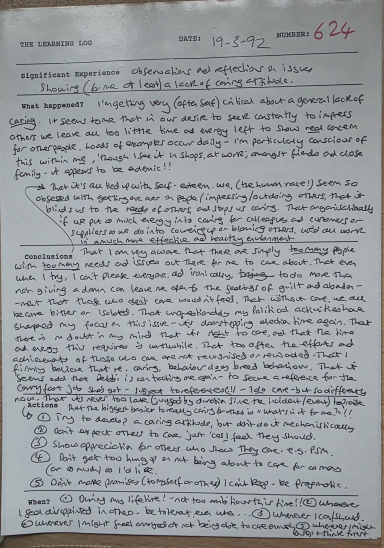 THE LEARNING LOG DATE: 19-3-92 NUMBER: 624
Significant Experience Observations and reflections on issues
Showing (to me at least) a lack of caring attitude.
What happened? I'm getting very (often self) critical about a general lack of
caring. It seems to me that in our desire to seek constantly to impress
others we leave all too little time and energy left to show real concern
for other people. Loads of examples occur daily - I'm particularly conscious of
this within me, though I see it in shops, at work, amongst friends and close
family - it appears to be endemic!!
That it's all tied up with self-esteem. we, (the human race!) seem so
obsessed with getting one up on people/impressing/outdoing others, that it
blinds us to the needs of others and stops us caring. That organisationally
if we put as much energy into caring for colleagues and customers or
suppliers as we do into covering up or blaming others, we'd all work
in a much more effective and healthy environment
Conclusions That I am very aware that there are simply too many people
with too many needs and issues out there for me to care about. That even
when I try, I can't please everyone. and ironically, to do more than
not giving a damn can leave me open to the feelings of guilt and
that those who don't care would feel. That without care, we all
become bitter or isolated. That unquestionably my political activities have
sharpened my focus on this issue - its doorstepping election time again. That
there is no doubt in my mind that it is right to care, and that the time
and energy this requires is worthwhile. That too often the efforts and
achievements of those who care are not recognised or rewarded. That I
firmly believe that re. caring, behaviour does breed behaviour. That it
seems
for
now. That
Actions That the biggest barrier to really caring for others is "what's in it for me"!!
① Try to develop a caring attitude, but don't do it mechanistically
② Don't expect others to care just 'cos I feel they should.
③ Show appreciation for others who show They care - e.g.
④ Don't get too hung up on not being able to care for as many
(or as much) as I'd like.
⑤ Don't make promises (to myself or others) I can't keep - be pragmatic.
When? ① During my lifetime! - not too ambitious this time!! ② whenever
I feel disappointed in others - be tolerant, ③ whenever I can/should.
④ whenever I might feel annoyed at not being able to care enough ⑤ whenever I might
think first